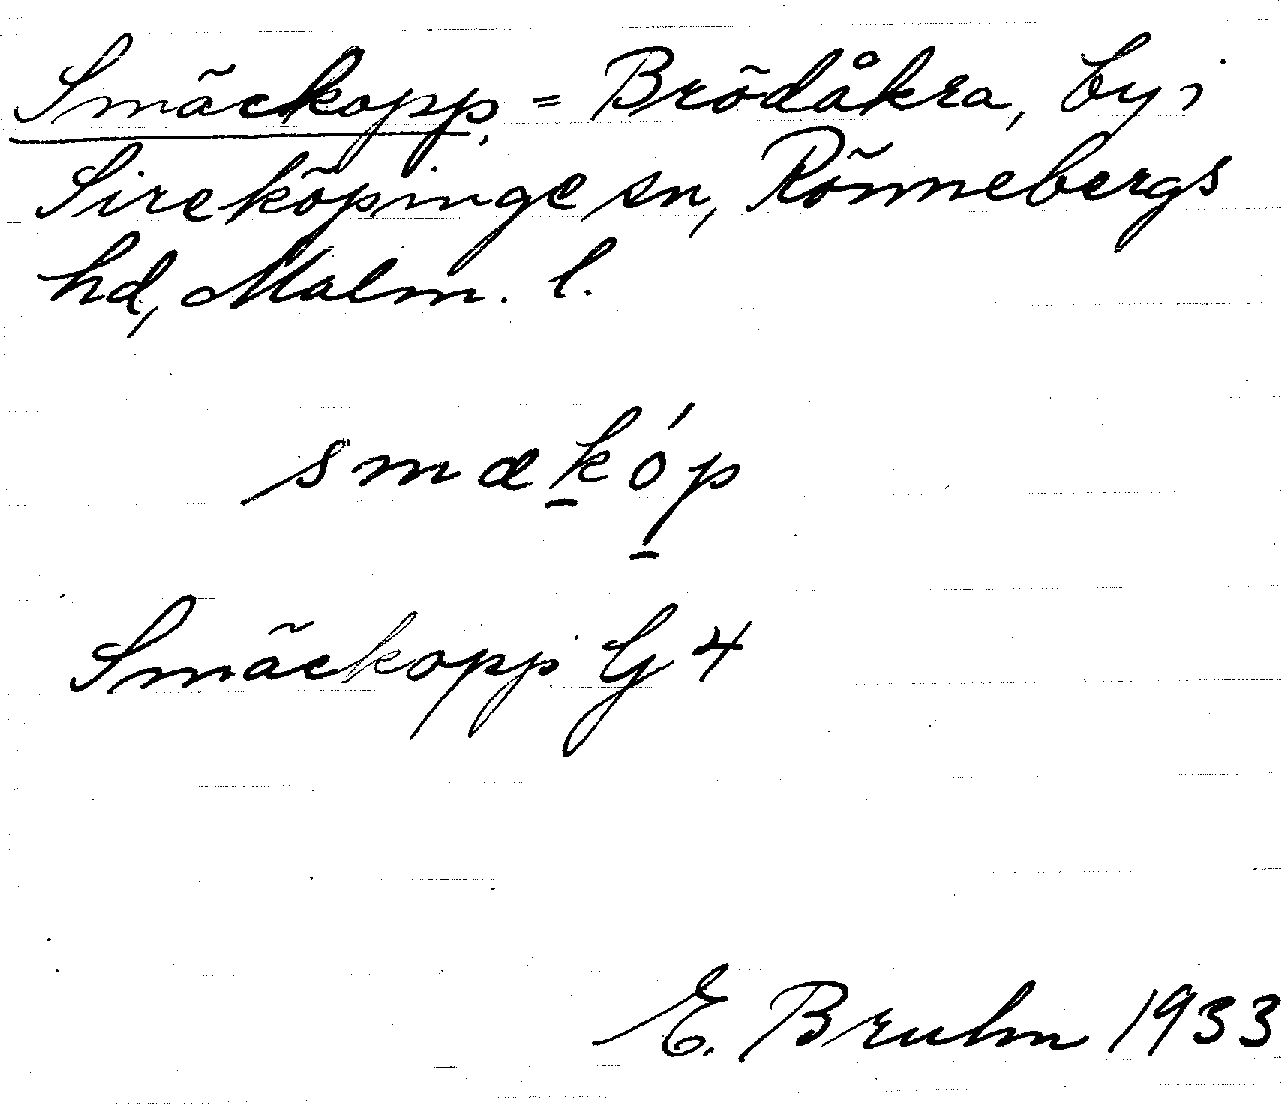 Smäckopp, = Brödåkra, by i
Sireköpinge sn, Rönnebergs
hd, Malm. l.
smækóp
Smäckopp G 4
E. Bruhn 1933